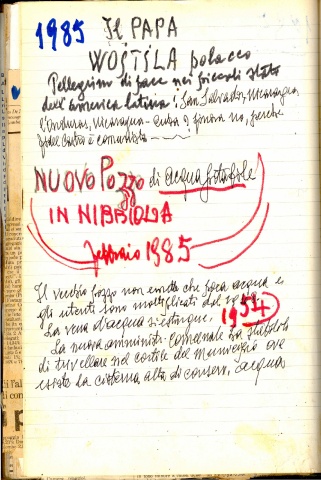 1985 Il PAPA
WOJTILA polacco
Pellegrino di pace nei piccoli stati
dell'america latina: San Salvador, Nicaragua,
l'Enduras, Nicaragua - Cuba? finora no, perché
Fidel Castro è comunista
NUOVO Pozzo di acqua potabile
IN NIBBIOLA
febbraio 1985
Il vecchio pozzo non che poca acqua e
gli utenti sono moltiplicati dal
1954
La vena d'acqua si estingue.
La nuova amministr. comunale ha stabilito
di trivellare nel cortile del municipio ove
esiste la cisterna alta di conserv. acqua